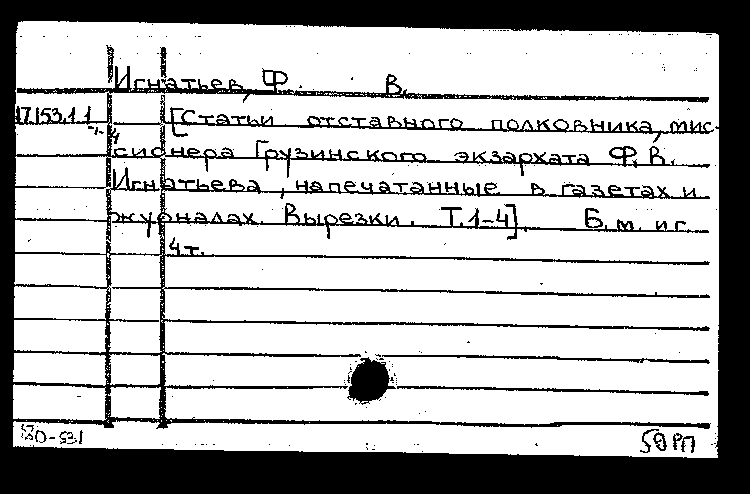 Игнатьев, Ф. В.
17.153.1.1 [Статьи отставного полковника, мис-
1-4 сионера Грузинского экзархата Ф. В.
Игнатьева, напечатанные в газетах и
журналах. Вырезки. Т.1-4]. Б.м. и г.
4 т.